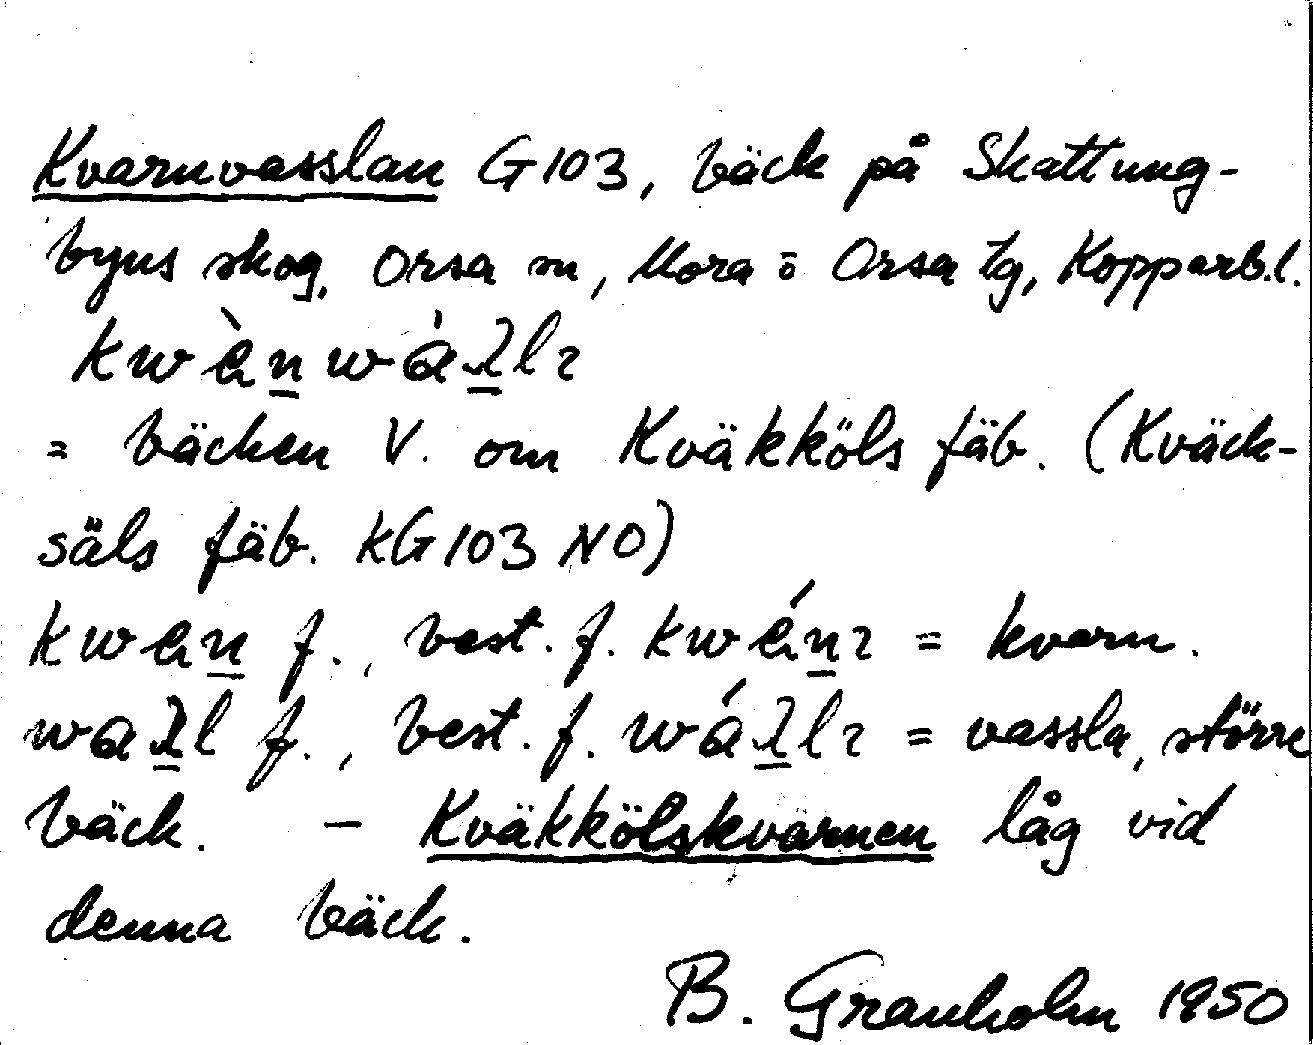 Kvarnvasslan G103, bäck på Skattung-
byns skog, Orsa sn, Mora ö Orsa tg, Kopparb.l.
= bäcken V. om Kväkköls fäb. (Kväck-
säls fäb. kG103 NO)
f., best. f. = kvarn.
f., best. f. = vassla, större
bäck. – Kväkkölskvarnen låg vid
denna bäck.
B. Granholm 1950